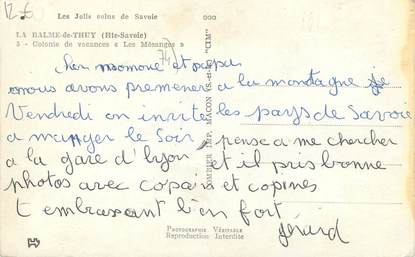 12€
Les Jolis coins de Savoie
LA BALME-de-THUY (Hte-Savoie)
5 - Colonie de vacances « Les Mésanges »
74
cher momone et papa
nous avons premener a la montagne je
Vendredi on invite les pays de Savoie
a manger le soir, pense a me chercher
a la gare d'lyon et il pris bonne
photos avec copain et copines
t embrassant bien fort
gérard
COMBIER IMP. MACON "CIM"
Photographie Véritable
Reproduction Interdite